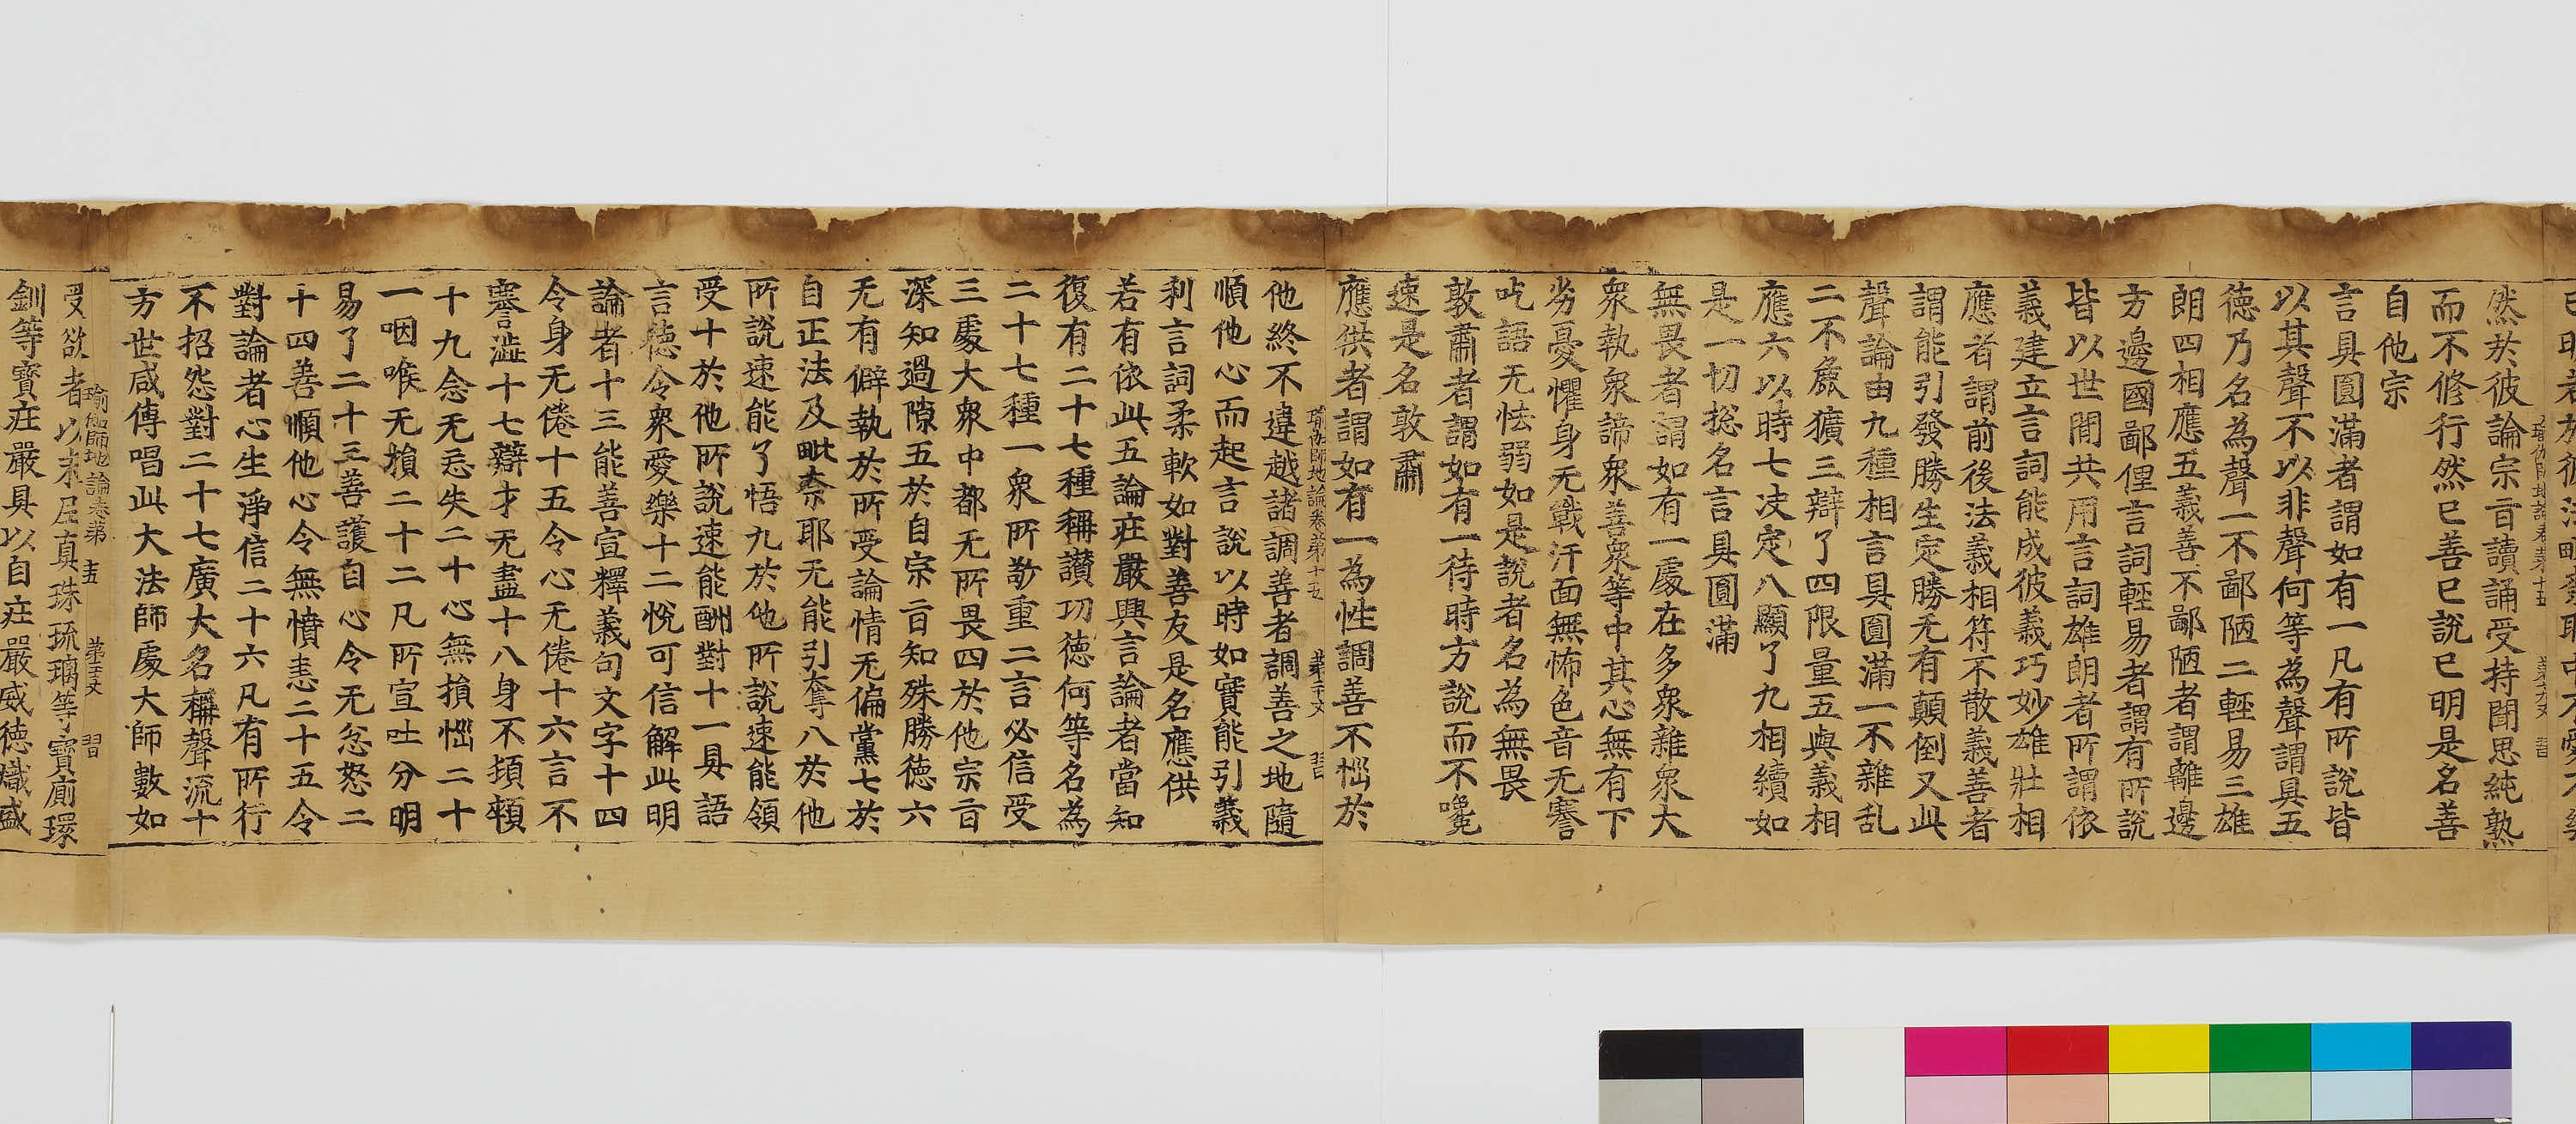 然於彼論宗旨讀誦受持聞思純熟
而不修行然已善已說已明是名善
自他宗
言具圓滿者謂如有一凡有所說皆
以其聲不以非聲何等為聲謂具五
德乃名為聲一不鄙陋二輕易三雄
朗四相應五義善不鄙陋者謂離邊
方邊國鄙俚言詞輕易者謂有所說
皆以世間共用言詞雄朗者所謂依
義建立言詞能成彼義巧妙雄壯相
應者謂前後法義相符不散義善者
謂能引發勝生定勝无有顛倒又此
聲論由九種相言具圓滿一不雜乱
二不麁獷三辯了四限量五與義相
應六以時七决定八顯了九相續如
是一切捴名言具圓滿
無畏者謂如有一處在多衆雜衆大
衆執衆諦衆善衆等中其心無有下
劣憂懼身无戰汗面無怖色音无謇
吃語无怯弱如是說者名為無畏
敦肅者謂如有一待時方說而不儳
速是名敦肅
應供者謂如有一為性調善不惱於
瑜伽師地論卷第十五 第二十丈 習
他終不違越諸調善者調善之地隨
順他心而起言說以時如實能引義
利言詞柔軟如對善友是名應供
若有依此五論莊嚴興言論者當知
復有二十七種稱讚功德何等名為
二十七種一衆所敬重二言必信受
三處大衆中都无所畏四於他宗旨
深知過隙五於自宗旨知殊勝德六
无有僻執於所受論情无偏黨七於
自正法及毗柰耶无能引奪八於他
所說速能了悟九於他所說速能領
受十於他所說速能酬對十一具語
言德令衆愛樂十二悅可信解此明
論者十三能善宣釋義句文字十四
令身无倦十五令心无倦十六言不
謇澁十七辯才无盡十八身不頓顇
十九念无忘失二十心無損惱二十
一咽喉无損二十二凡所宣吐分明
易了二十三善護自心令无忿怒二
十四善順他心令無憤恚二十五令
對論者心生淨信二十六凡有所行
不招怨對二十七廣大名稱聲流十
方世咸傳唱此大法師處大師數如
瑜伽師地論卷第十五 習
受欲者以末尼真珠琉璃等寶廁環
釧等寶莊嚴具以自莊嚴威德熾盛